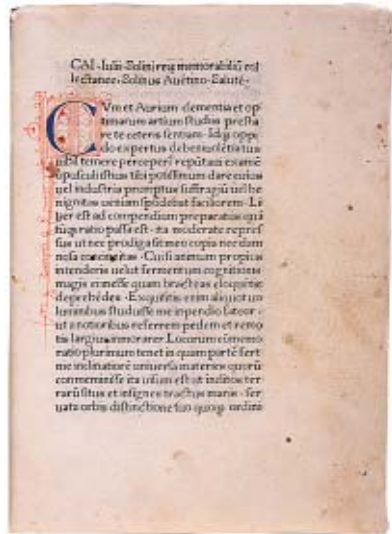 CAI·Iulii·Solini rerū memorabiliū col
lectanee·Solinus Auētino·Salutē·
CVm et Aurium clementia et op
timarum artium studiis presta
re te ceteris sentiam·Idq; oppi
do expertus de beniuolētia tua
nihil temere perceperī reputans examē
opusculi istius tibi potissimum dare cuius
uel industria promptius suffragiū uel be
nignitas ueniam spōdebat faciliorem·Li
ber est ad compendium preparatus quā
tūq; ratio passa est·ita moderate repres
sus ut nec prodiga sit in eo copia nec dam
nosa concinnitas·Cui si animum propius
intenderis uelut fermentum cognitionis
magis ei inesse quam bracteas eloquētie
deprehēdes·Exquisitis enim aliquot uo
luminibus studuisse me inpendio fateor·
ut a notioribus referrem pedem et remo
tis largius inmorarer·Locorum cōmemo
ratio plurimum tenet in quam partē ferē
me inclinatior est uniuersa materies quorū
commeminisse ita uisum est ut inclitos ter
rarū situs et insignes tractus maris·ser
uata orbis distinctione suo quoq; ordine